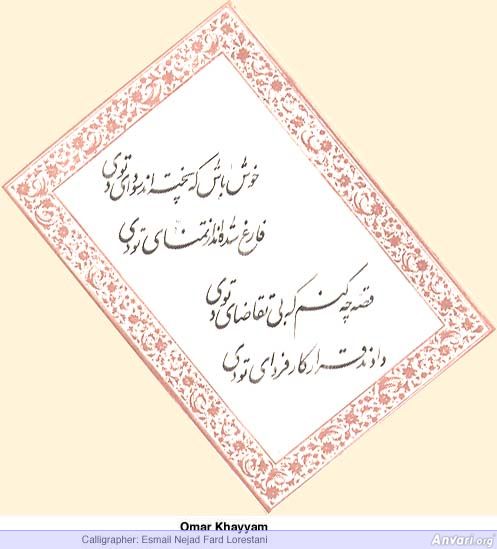 خوش باش که پخته‌اند سودای تو دی
فارغ شده‌اند از تمنای تو دی
قصه چه کنم که بی تقاضای تو دی
دادند قرار کار فردای تو دی
Omar Khayyam
Calligrapher: Esmail Nejad Fard Lorestani
Anvari.org